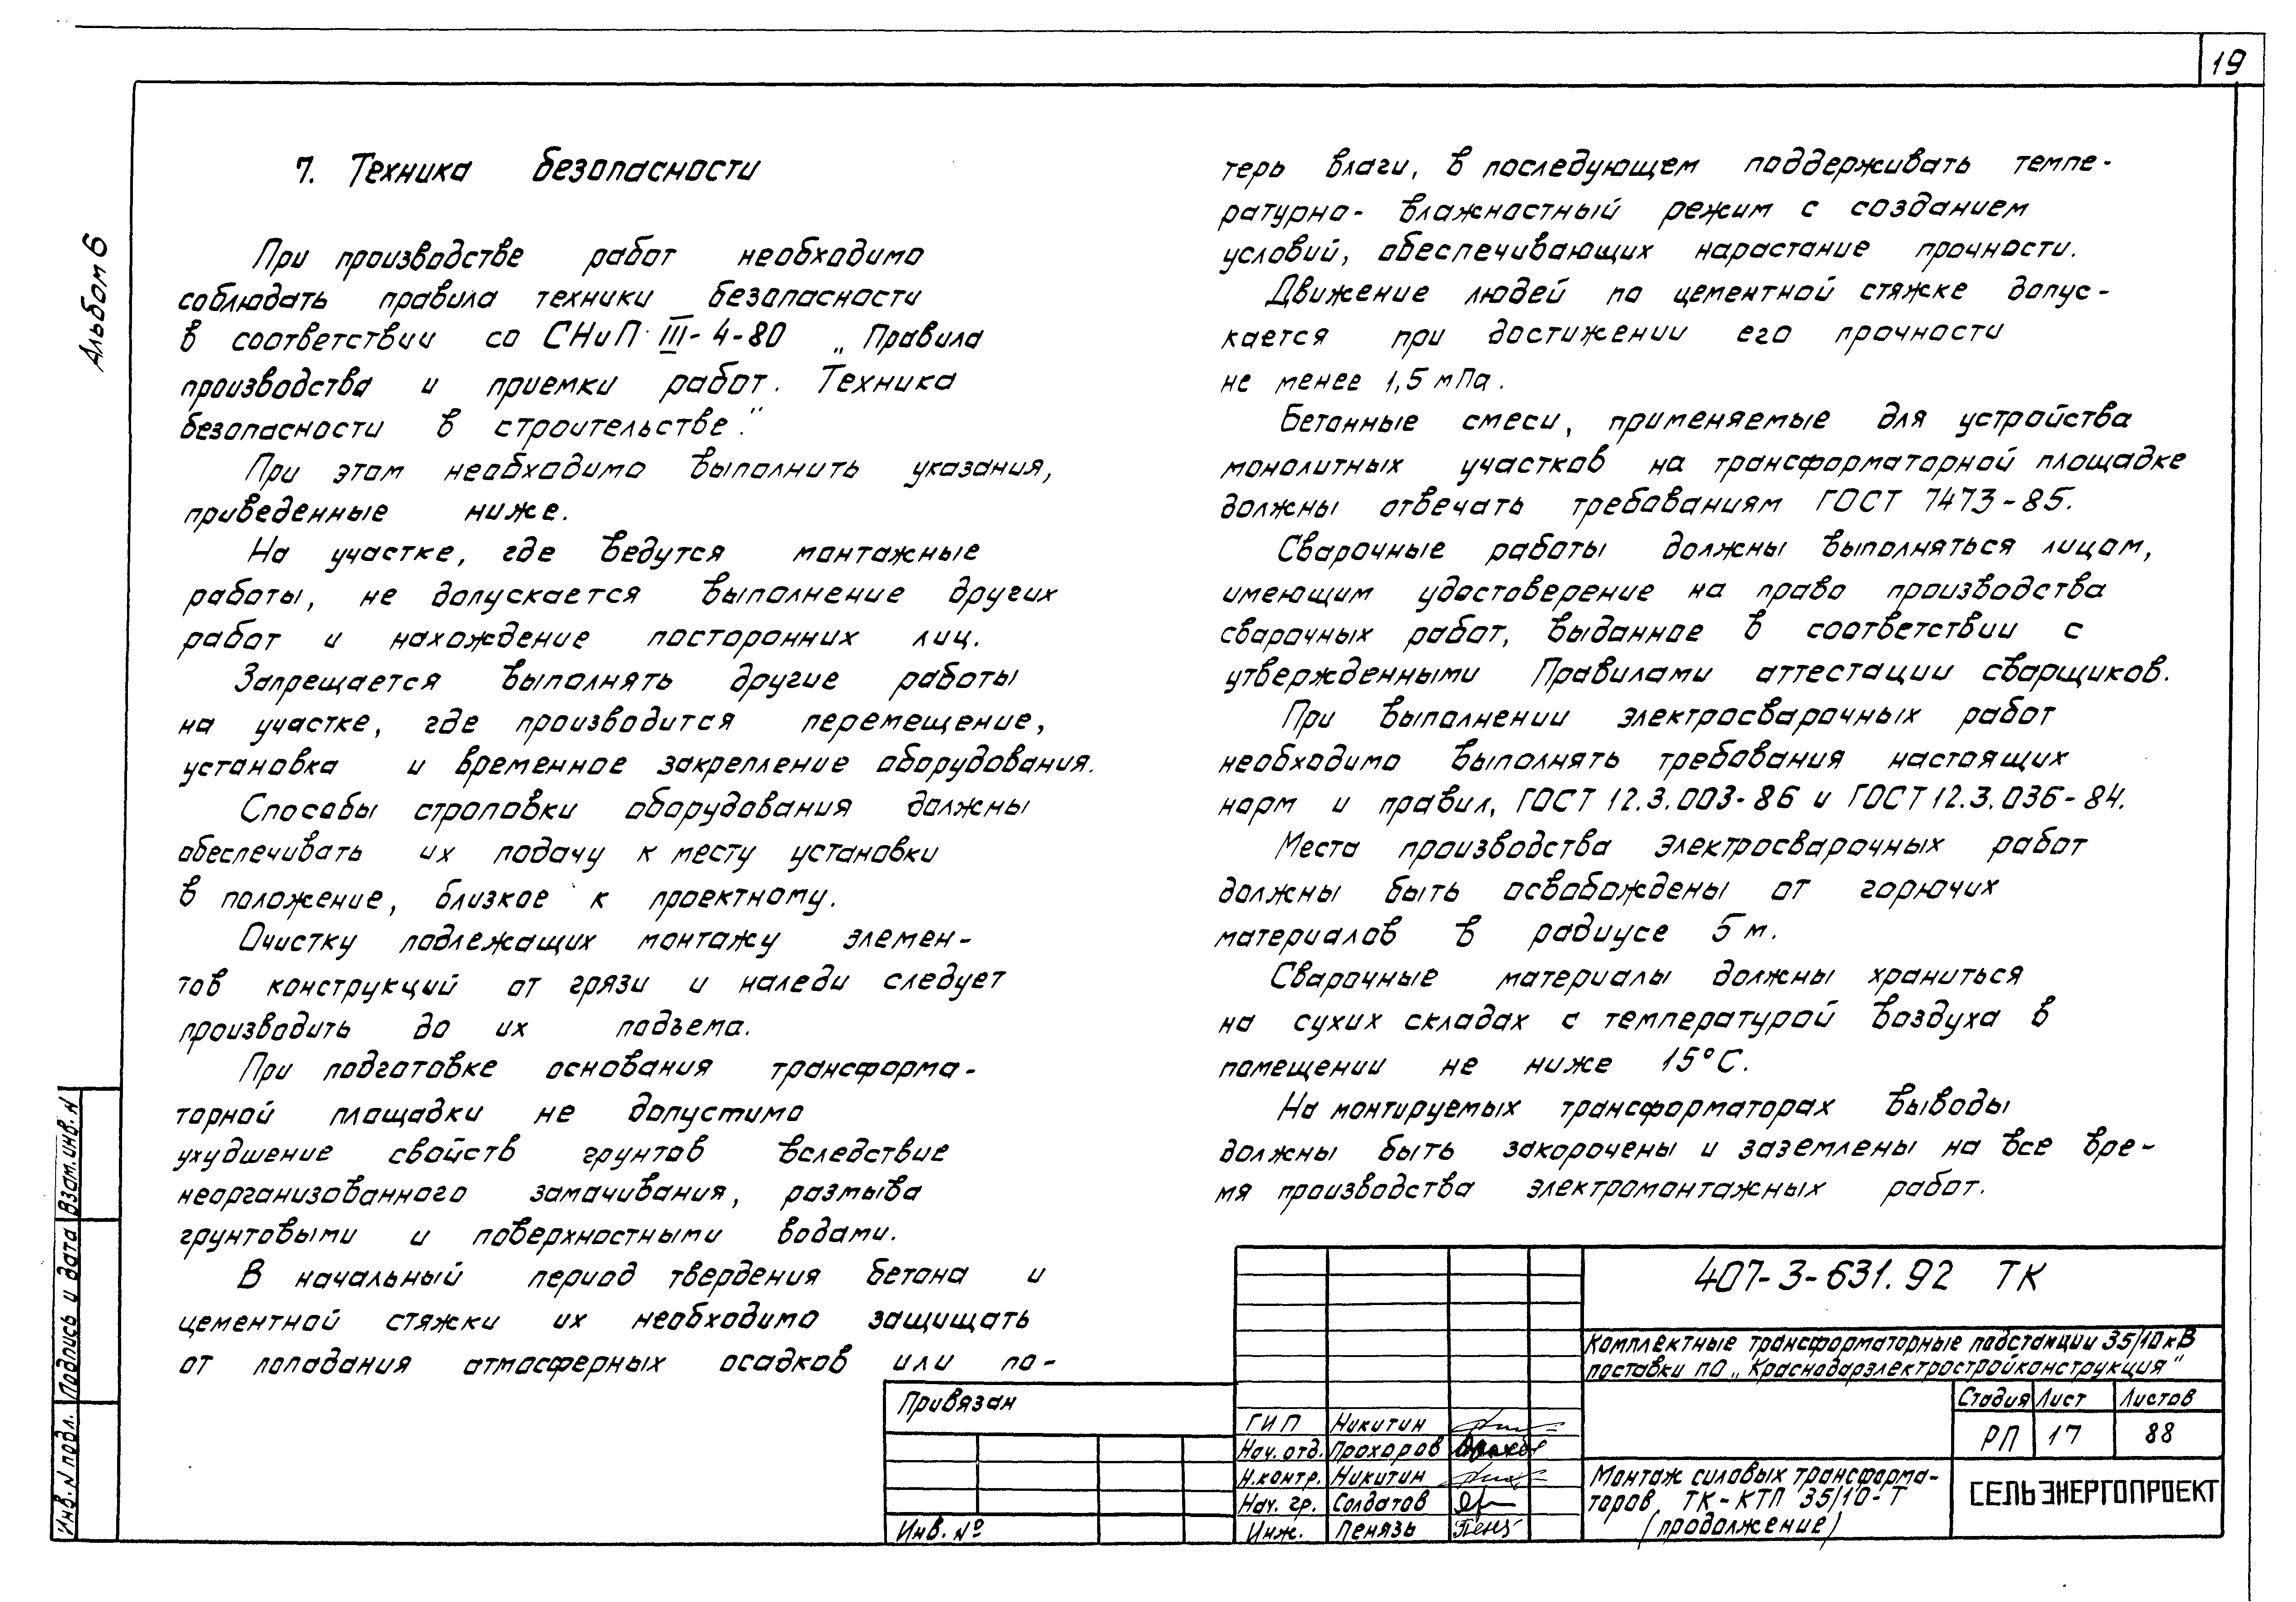 19
Альбом 6
7. Техника безопасности
При производстве работ необходимо
соблюдать правила техники безопасности
в соответствии со СНиП III-4-80 „Правила
производства и приемки работ. Техника
безопасности в строительстве."
При этом необходимо выполнить указания,
приведенные ниже.
На участке, где ведутся монтажные
работы, не допускается выполнение других
работ и нахождение посторонних лиц.
Запрещается выполнять другие работы
на участке, где производится перемещение,
установка и временное закрепление оборудования.
Способы строповки оборудования должны
обеспечивать их подачу к месту установки
в положение, близкое к проектному.
Очистку подлежащих монтажу элемен-
тов конструкций от грязи и наледи следует
производить до их подъема.
При подготовке основания трансформа-
торной площадки не допустимо
ухудшение свойств грунтов вследствие
неорганизованного замачивания, размыва
грунтовыми и поверхностными водами.
В начальный период твердения бетона и
цементной стяжки их необходимо защищать
от попадания атмосферных осадков или по-
терь влаги, в последующем поддерживать темпе-
ратурно- влажностный режим с созданием
условий, обеспечивающих нарастание прочности.
Движение людей по цементной стяжке допус-
кается при достижении его прочности
не менее 1,5 мПа.
Бетонные смеси, применяемые для устройства
монолитных участков на трансформаторной площадке
должны отвечать требованиям ГОСТ 7473-85.
Сварочные работы должны выполняться лицам,
имеющим удостоверение на право производства
сварочных работ, выданное в соответствии с
утвержденными Правилами аттестации сварщиков.
При выполнении электросварочных работ
необходимо выполнять требования настоящих
норм и правил, ГОСТ 12.3.003-86 и ГОСТ 12.3.036-84.
Места производства электросварочных работ
должны быть освобождены от горючих
материалов в радиусе 5 м.
Сварочные материалы должны храниться
на сухих складах с температурой воздуха в
помещении не ниже 15°С.
На монтируемых трансформаторах выводы
должны быть закорочены и заземлены на все вре-
мя производства электромонтажных работ.
Взам. инв. N
Подпись и дата
Инв. N подл.
Привязан
Инв. №
ГИП Никитин
Нач. отд. Прохоров
Н.контр. Никитин
Нач. гр. Солдатов
Инж. Пенязь
407-3-631.92 ТК
Комплектные трансформаторные подстанции 35/10 кВ
поставки ПО „Краснодарэлектростройконструкция"
Стадия Лист Листов
РП 17 88
Монтаж силовых трансформа-
торов ТК-КТП 35/10-Т
(продолжение)
СЕЛЬЭНЕРГОПРОЕКТ